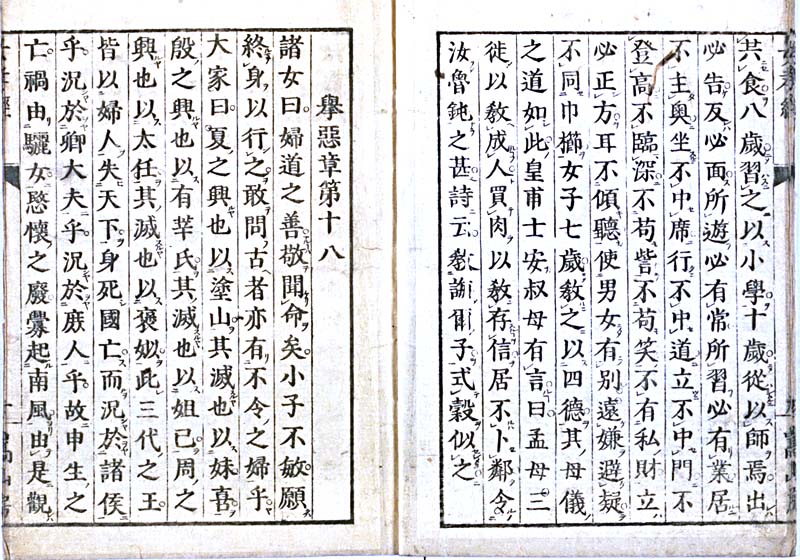 共食八歲習之以小學十歲從以師焉出
必告反必面所遊必有常所習必有業居
不主奧坐不中席行不中道立不中門不
登高不臨深不苟訾不苟笑不有私財立
必正方耳不傾聽使男女有別遠嫌避疑
不同巾櫛女子七歲教之以四德其母儀
之道如此皇甫士安叔母有言曰孟母三
徙以教成人買肉以教存信居不卜鄰令
汝魯鈍之甚詩云教誨爾子式穀似之
舉惡章第十八
諸女曰婦道之善敬聞命矣小子不敏願
終身以行之敢問古者亦有不令之婦乎
大家曰夏之興也以塗山其滅也以妹喜
殷之興也以有莘氏其滅也以妲己周之
興也以太任其滅也以褒姒此三代之王
皆以婦人失天下身死國亡而況於諸侯
乎況於卿大夫乎況於庶人乎故申生之
亡禍由驪女愍懷之廢釁起南風由是觀